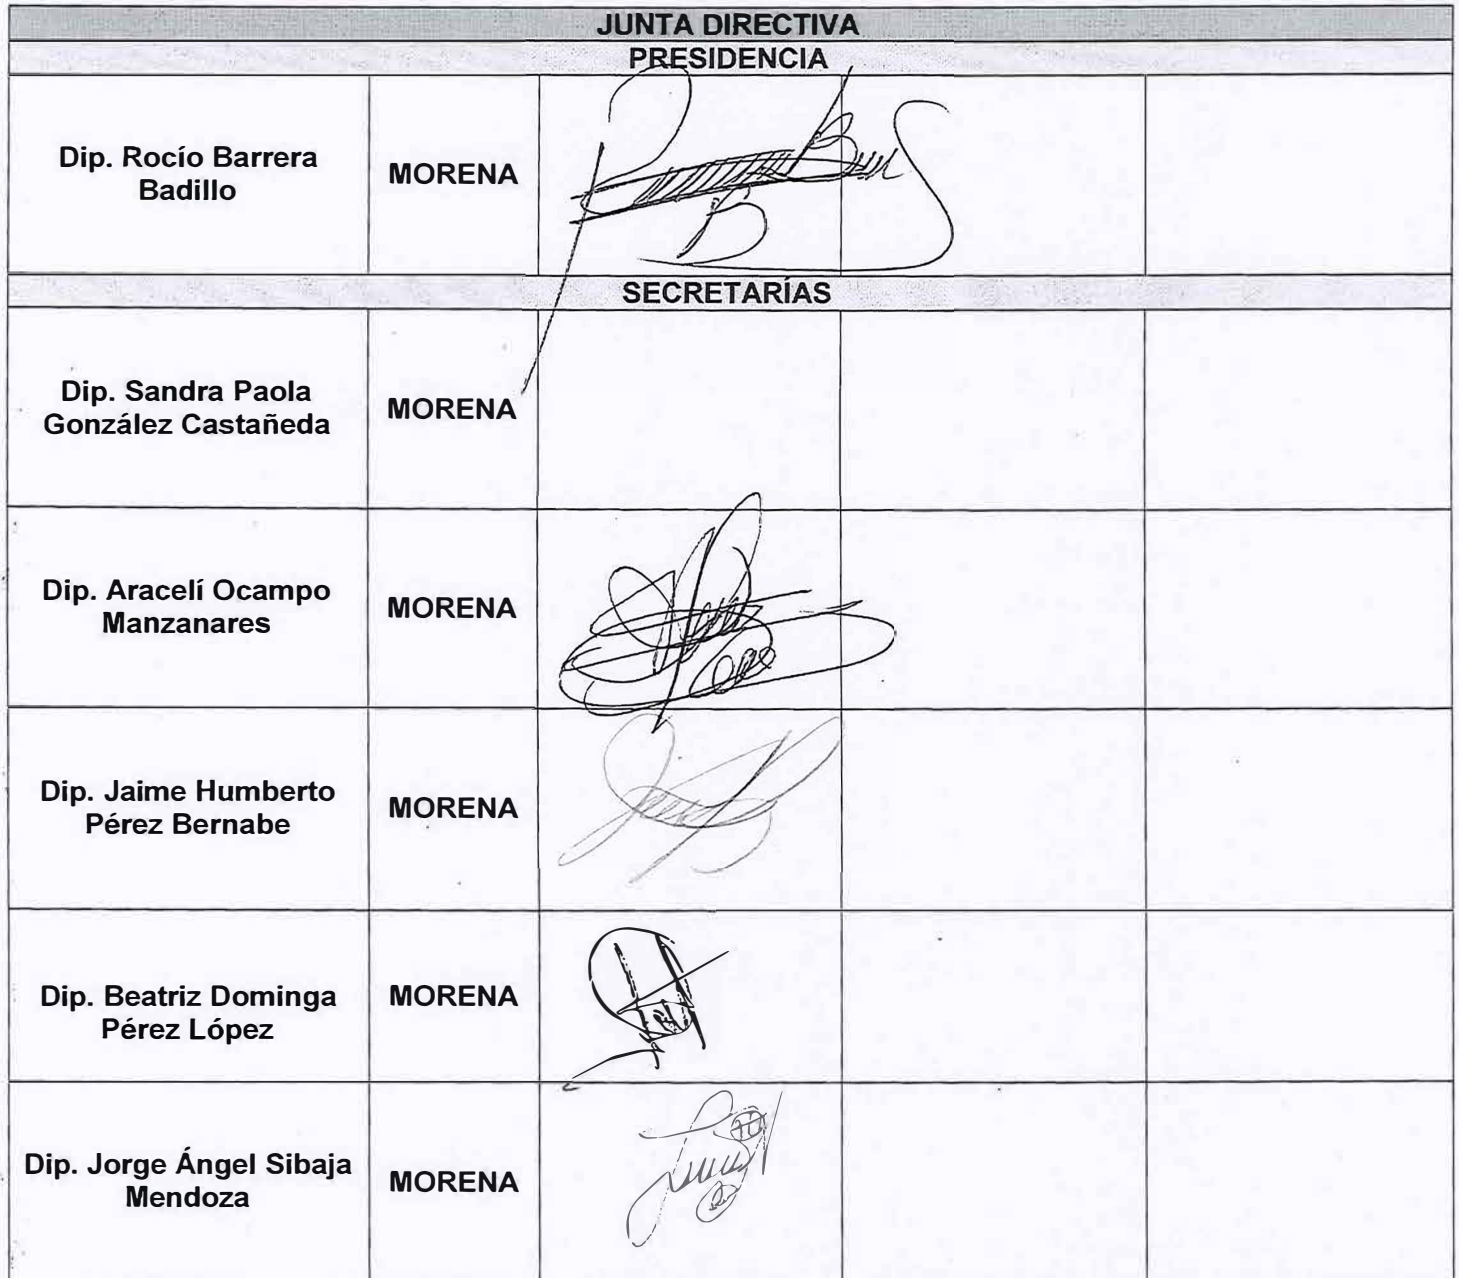 JUNTA DIRECTIVA
PRESIDENCIA
Dip. Rocío Barrera
Badillo
MORENA
SECRETARÍAS
Dip. Sandra Paola
González Castañeda
MORENA
Dip. Aracelí Ocampo
Manzanares
MORENA
Dip. Jaime Humberto
Pérez Bernabe
MORENA
Dip. Beatriz Dominga
Pérez López
MORENA
Dip. Jorge Ángel Sibaja
Mendoza
MORENA